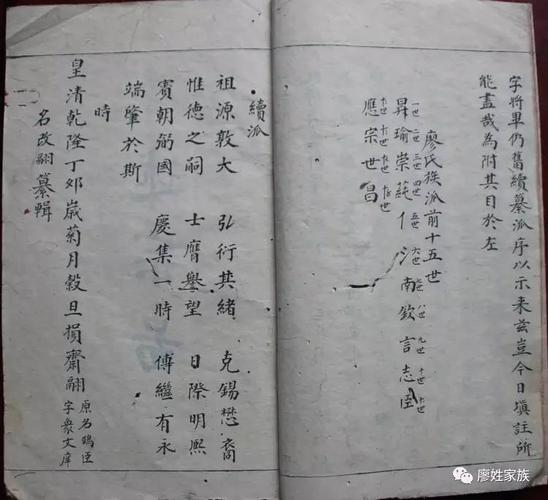 字將畢仍舊續纂派序以示来茲豈今日填註所
能盡哉為附其目於左
廖氏族派前十五世
昇瑜崇莼仁 南欽言志臣
一世 二世 三世 四世 五世 六世 七世 八世 九世 十世 十一世
應宗世昌
續派
祖源敦大 弘衍其緒 克錫懋裔
惟德之嗣 士膺舉望 日際明熙
賓朝弼國 慶集一時 傳繼有永
端肇於斯
時
皇清乾隆丁夘歲菊月穀旦損齋翮
原名 臣
字衆文庠
名改翮纂輯
廖姓家族